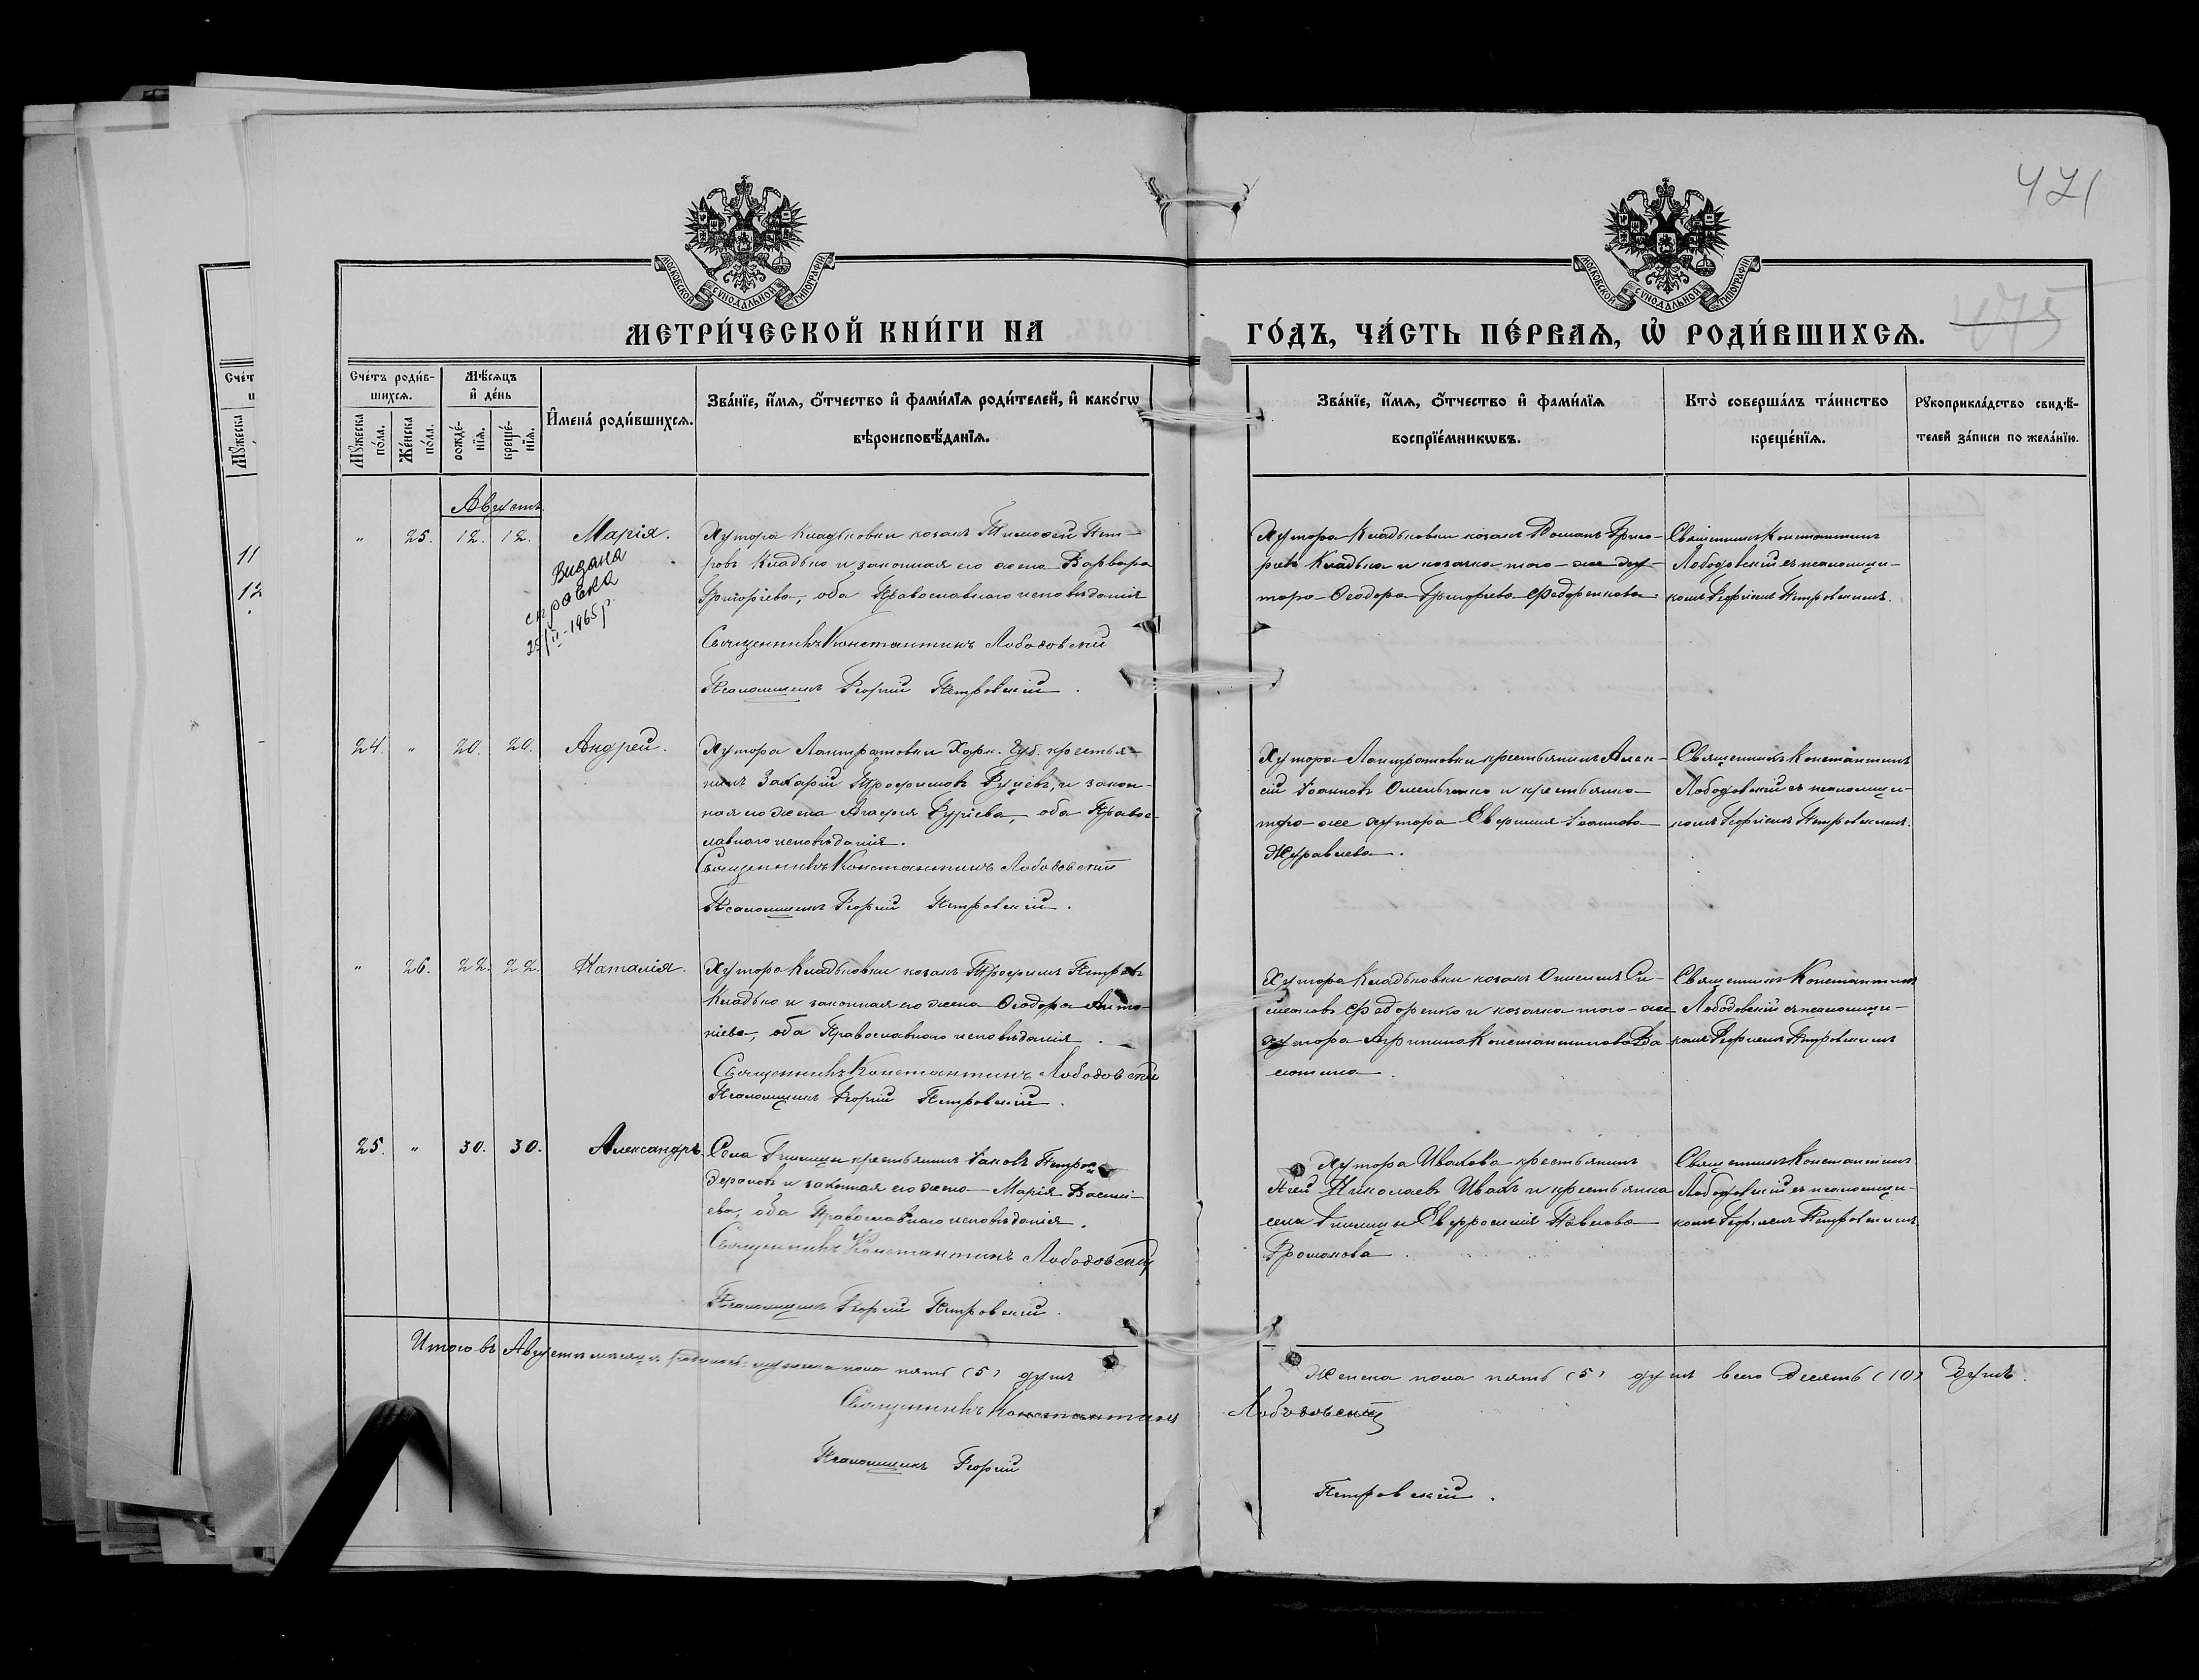 471
475
МОСКОВСКОЙ СѴНОДАЛЬНОЙ ТИПОГРАФІИ
МОСКОВСКОЙ СѴНОДАЛЬНОЙ ТИПОГРАФІИ
МЕТРИ́ЧЕСКОЙ КНИ́ГИ НА ГО́ДЪ, ЧА́СТЬ ПЕ́РВАѦ, Ѽ РОДИ́ВШИХСѦ.
Сче́тъ роди́в-
шихсѧ.
Мꙋ́жеска по́ла.
Же́нска по́ла.
Мѣ́сѧцъ
и҆ де́нь
рожде́-
нїѧ.
креще́-
нїѧ.
И҆мена̀ роди́вшихсѧ.
Зва́нїе, и҆́мѧ, ѻ҆́тчество и҆ фами́лїѧ роди́телей, и҆ како́гѡ
вѣроисповѣ́данїѧ.
Зва́нїе, и҆́мѧ, ѻ҆́тчество и҆ фами́лїѧ
воспрїе́мникѡвъ.
Кто̀ соверша́лъ та́инство
креще́нїѧ.
Рꙋкоприкла́дство свидѣ́-
телей за́писи по жела́нїю.
11
12
Августъ.
" 25. 12. 12. Марія.
Видана
справка
25/II-1965 р.
Хутора Кладьковки козакъ Тимофей Пет-
ровъ Кладько и законная его жена Варвара
Григоріева, оба Православнаго исповѣданія
Священникъ Константинъ Лободовскій
Псаломщикъ Георгій Петровскій.
Хутора Кладьковки козакъ Романъ Григо-
ріевъ Кладько и козачка того-же ху-
тора Феодора Григорьева Федоренкова.
Священникъ Константинъ
Лободовскій съ псаломщи-
комъ Георгіемъ Петровскимъ.
24. " 20. 20. Андрей.
Хутора Лантратовки Харк. Губ. крестья-
нинъ Захарій Трофимовъ Гуріевъ, и закон-
ная его жена Агафія Гуріева, оба Правос-
лавнаго исповѣданія.
Священникъ Константинъ Лободовскій
Псаломщикъ Георгій Петровскій.
Хутора Лантратовки крестьянинъ Алек-
сій Іоанновъ Омельченко и крестьянка
того-же хутора Евфимія Іоаннова
Журавлева.
Священникъ Константинъ
Лободовскій съ псаломщи-
комъ Георгіемъ Петровскимъ.
" 26. 22. 22. Наталія.
Хутора Кладьковки козакъ Трофимъ Петровъ
Кладько и законная его жена Феодора Анто-
ніева, оба Православнаго исповѣданія
Священникъ Константинъ Лободовскій
Псаломщикъ Георгій Петровскій.
Хутора Кладьковки козакъ
Федоренко и козачка того-же
хутора Агрипина Константинова
Священникъ Константинъ
Лободовскій съ псаломщи-
комъ Георгіемъ Петровскимъ
25. " 30. 30. Александръ.
Села Гнилицы крестьянинъ Іаковъ
и законная его жена Марія Василі-
ева, оба Православнаго исповѣданія.
Священникъ Константинъ Лободовскій
Псаломщикъ Георгій Петровскій.
Хутора Ивахова крестьянинъ
Николаевъ Ивахъ и крестьянка
села Гнилицы Евфросинія Павлова
Громакова.
Священникъ Константинъ
Лободовскій съ псаломщи-
комъ Георгіемъ Петровскимъ.
Итого въ Августѣ мѣсяцѣ родилось: мужеска пола пять (5) душъ Женска пола пять (5) душъ всего десять (10) душъ.
Священникъ Константинъ Лободовскій
Псаломщикъ Георгій Петровскій.